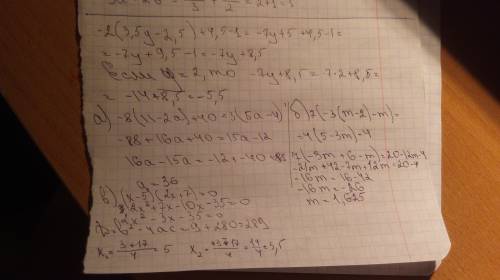 -2(3,5y-2,5)+4,5-1=-7y+5+4,5-1=
=-7y+9,5-1=-7y+8,5
Если y=2, то -7y+8,5=-7·2+8,5=
=-14+8,5=-5,5
а) -8(11-2a)+40=3(5a-4)
-88+16a+40=15a-12
16a-15a=-12-40+88
a=36
б) 7(-3(m-2)-m)=
-4(5-3m)-4
7(-3m+6-m)=20-12m-4
-21m+42-7m+12m=20-4
-16m=16-42
-16m=-26
m=1,625
в) (x-5)(2x+7)=0
2x²+7x-10x-35=0
2x²-3x-35=0
D=b²-4ac=9+280=289
x₁=3+17/4=5 x₂=-3+17/4=14/4=3,5